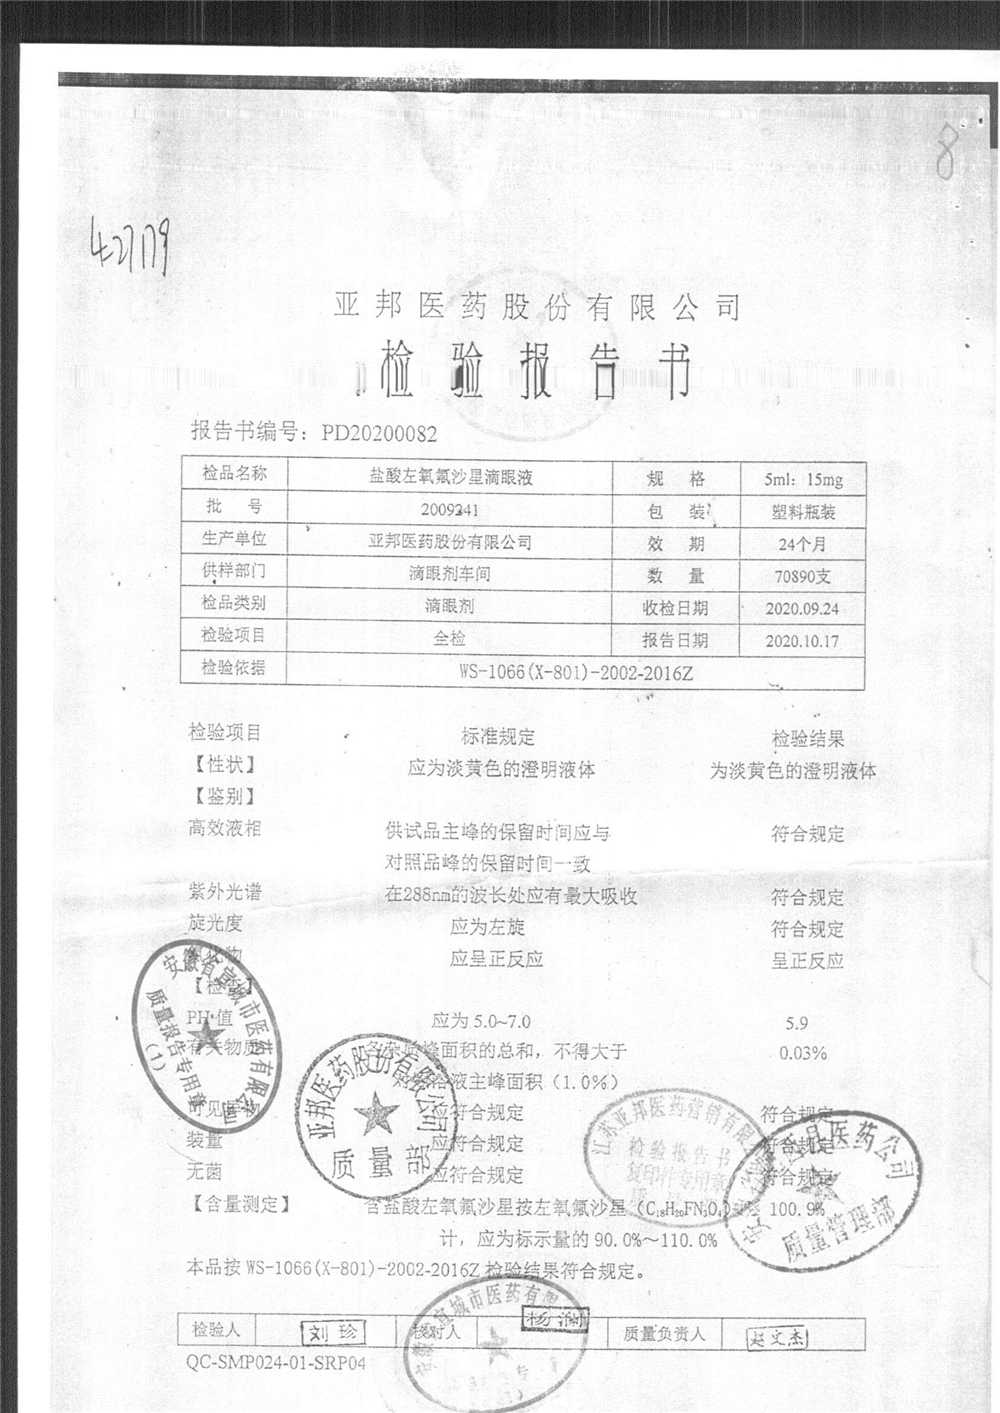 8
427179
亚邦医药股份有限公司
检验报告书
报告书编号：PD20200082
检品名称 盐酸左氧氟沙星滴眼液 规格 5ml：15mg
批号 2009241 包装 塑料瓶装
生产单位 亚邦医药股份有限公司 效期 24个月
供样部门 滴眼剂车间 数量 70890支
检品类别 滴眼剂 收检日期 2020.09.24
检验项目 全检 报告日期 2020.10.17
检验依据 WS-1066(X-801)-2002-2016Z
检验项目 标准规定 检验结果
【性状】 应为淡黄色的澄明液体 为淡黄色的澄明液体
【鉴别】
高效液相 供试品主峰的保留时间应与 符合规定
对照品峰的保留时间一致
紫外光谱 在288nm的波长处应有最大吸收 符合规定
旋光度 应为左旋 符合规定
应呈正反应 呈正反应
【检查】
PH值 应为5.0~7.0 5.9
有关物质 各杂质峰面积的总和，不得大于 0.03%
液主峰面积（1.0%）
可见异物 应符合规定 符合规定
装量 应符合规定 符合规定
无菌 应符合规定 符合规定
【含量测定】 含盐酸左氧氟沙星按左氧氟沙星（C18H20FN3O4） 100.9%
计，应为标示量的90.0%～110.0%
本品按WS-1066(X-801)-2002-2016Z检验结果符合规定。
检验人 刘珍 核对人 杨 质量负责人 赵文杰
QC-SMP024-01-SRP04
安徽省宣城市医药有限公司
质量报告专用章
（1）
亚邦医药股份有限公司
质量部
江苏亚邦医药营销有限
检验报告书
复印件专用章
县医药公司
质量管理部
宣城市医药有限